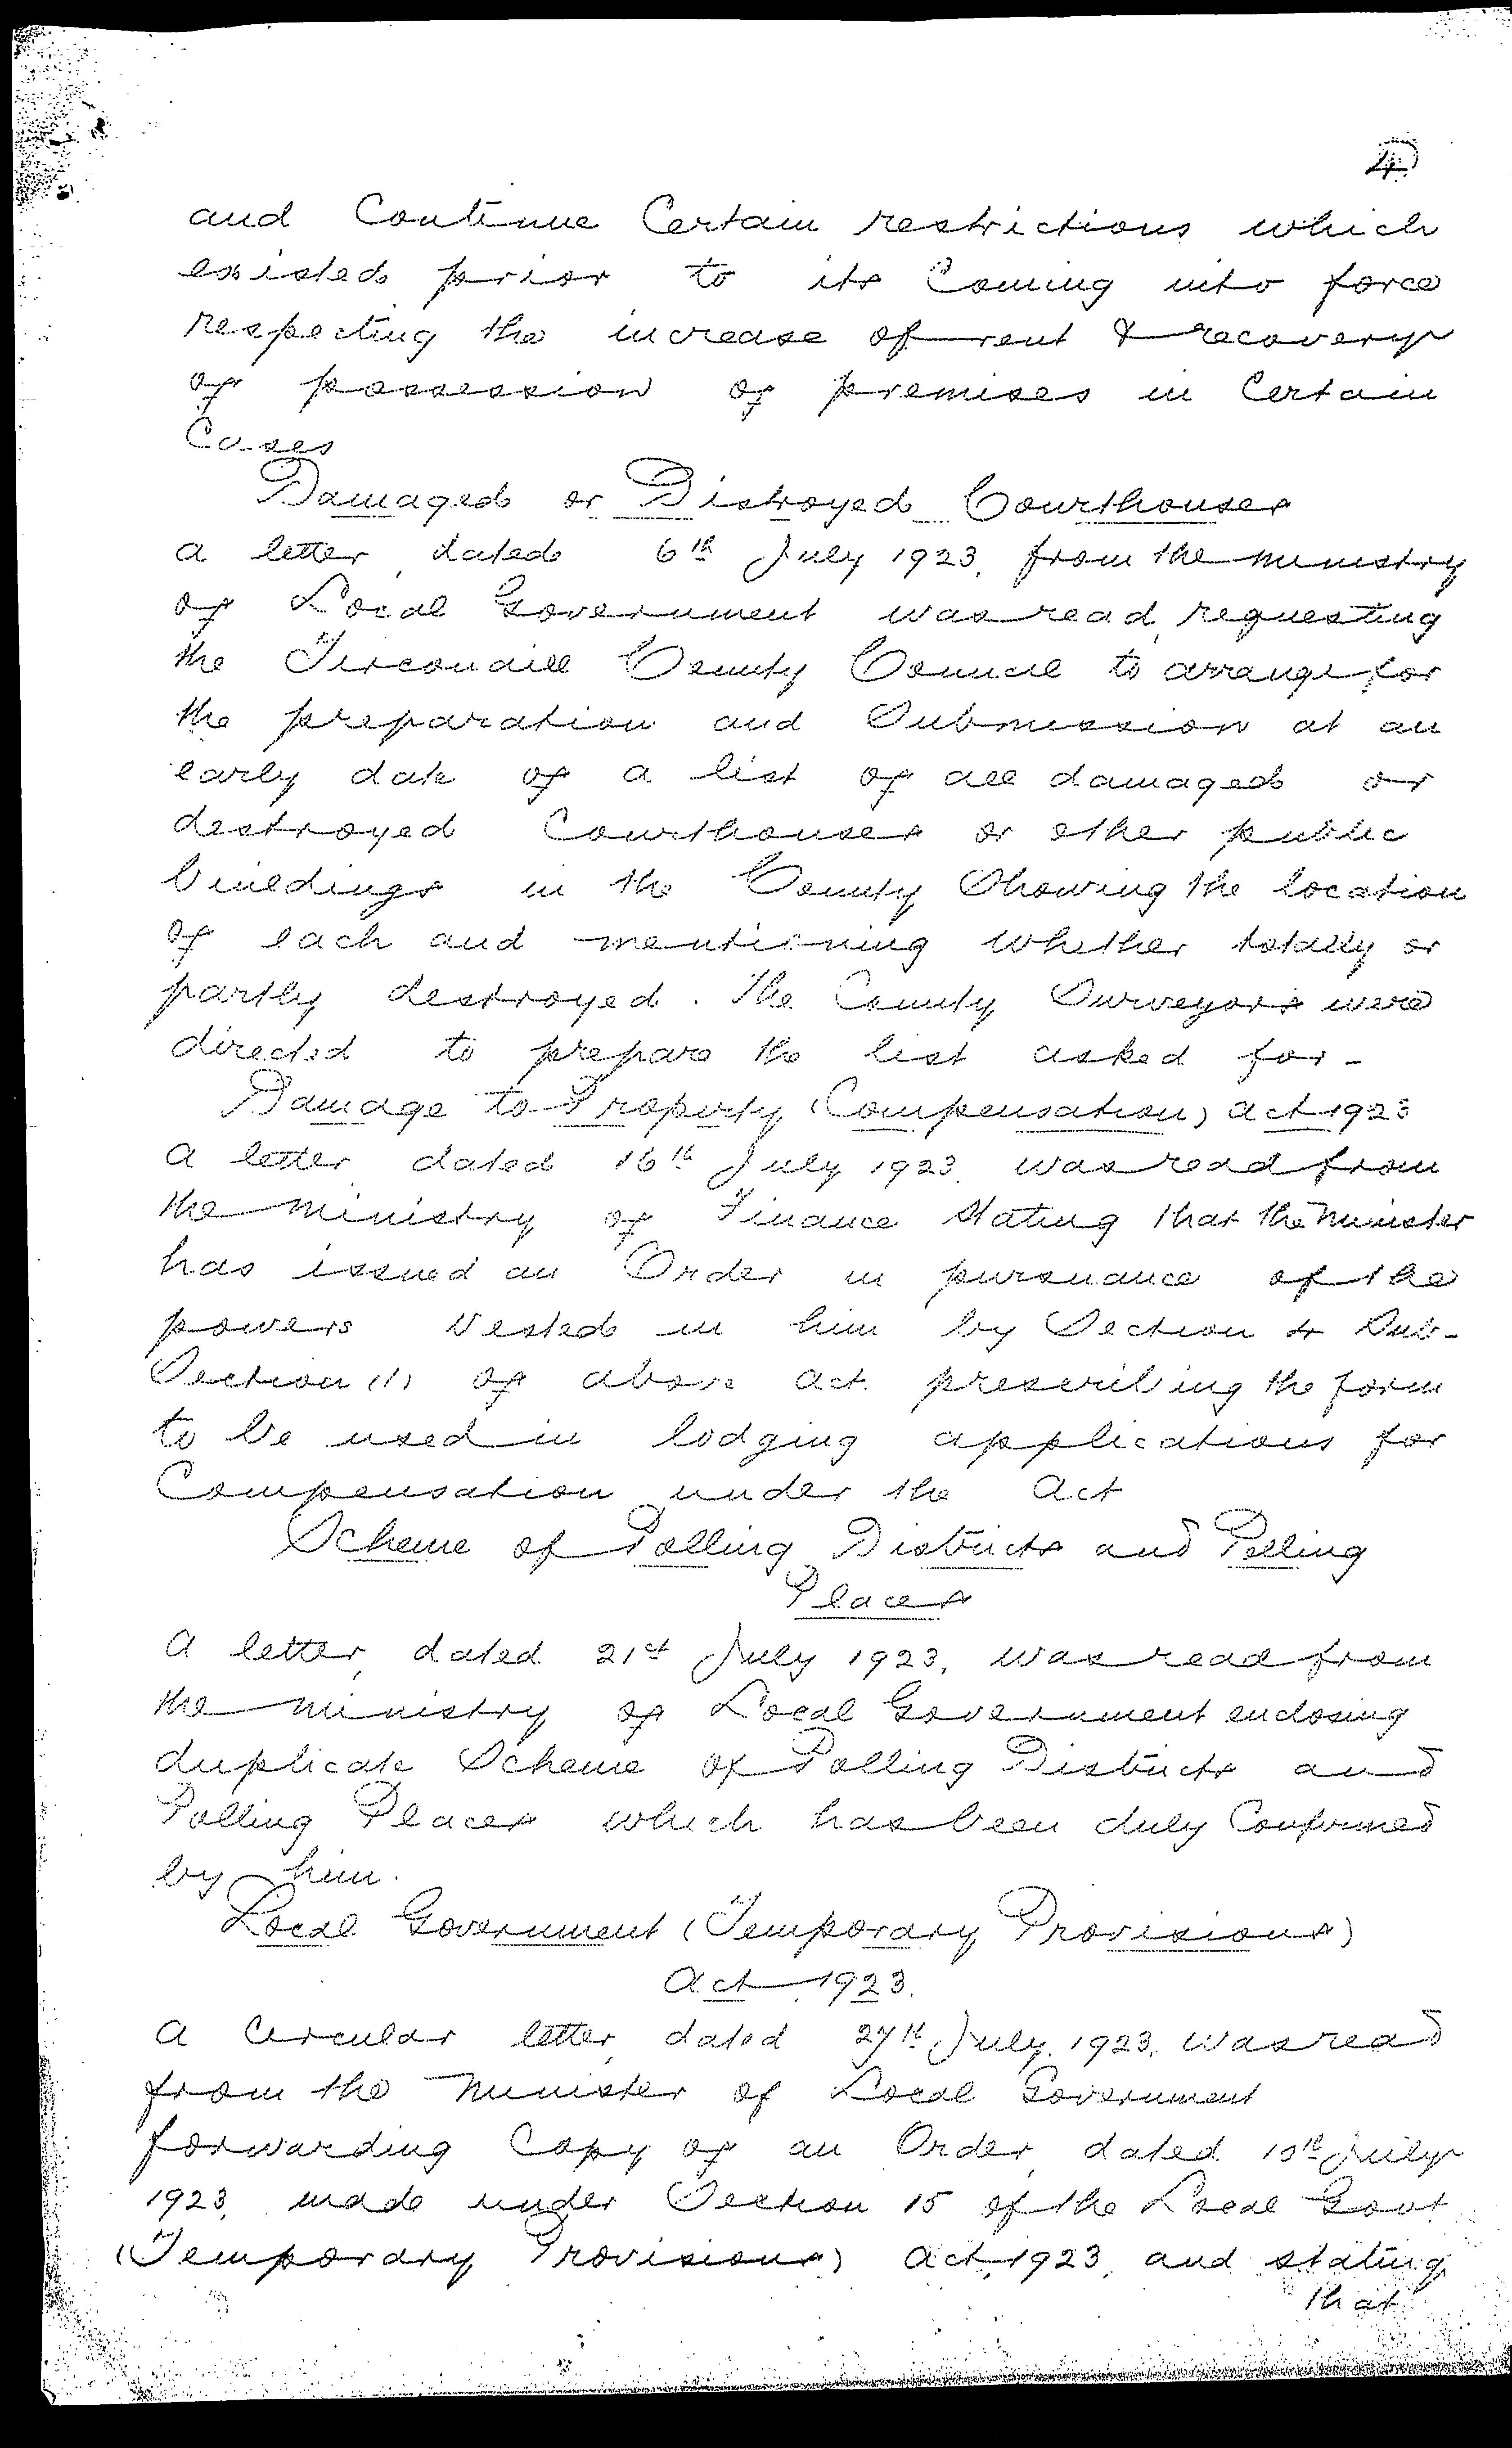 4
and Continue Certain restrictions which
existed prior to its Coming into force
respecting the increase of rent & recovery
of possession of premises in Certain
Cases
Damaged or Distroyed Courthouses
A letter, dated 6th July 1923, from the Ministry
of Local Government was read, requesting
the Tirconaill County Council to arrange for
the preparation and Submission at an
early date of a list of all damaged or
destroyed Courthouses or other public
buildings in the County Showing the location
of each and mentioning whether totally or
partly destroyed. The County Surveyors were
directed to prepare the list asked for-
Damage to Property (Compensation) Act 1923
A letter, dated 16th July 1923, was read from
the Ministry of Finance Stating that the Minister
has issued an Order in pursuance of the
powers Vested in him by Section 4 Sub-
Section (1) of above Act. prescribing the form
to be used in lodging applications for
Compensation under the Act
Scheme of Polling Districts and Polling
Places
A letter, dated 21st July 1923, was read from
the Ministry of Local Government enclosing
duplicate Scheme of Polling Districts and
Polling Places which has been duly Confirmed
by him.
Local Government (Temporary Provisions)
Act 1923.
A Circular letter, dated 27th July, 1923, was read
from the Minister of Local Government
forwarding Copy of an Order, dated July
1923, made under Section 15 of the Local Govt
(Temporary Provisions) Act, 1923, and stating
that